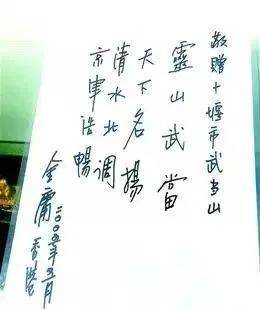 敬赠十堰市武当山
靈山武當
天下名揚
清水北調
京津浩暢
金庸
二〇〇五年五月
香港